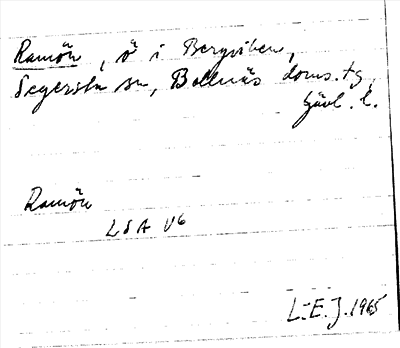 Ramön, ö i Bergviken,
Segersta sn, Bollnäs doms. tg,
Gävl. l.
Ramön
LSA V6
L-E. J. 1965